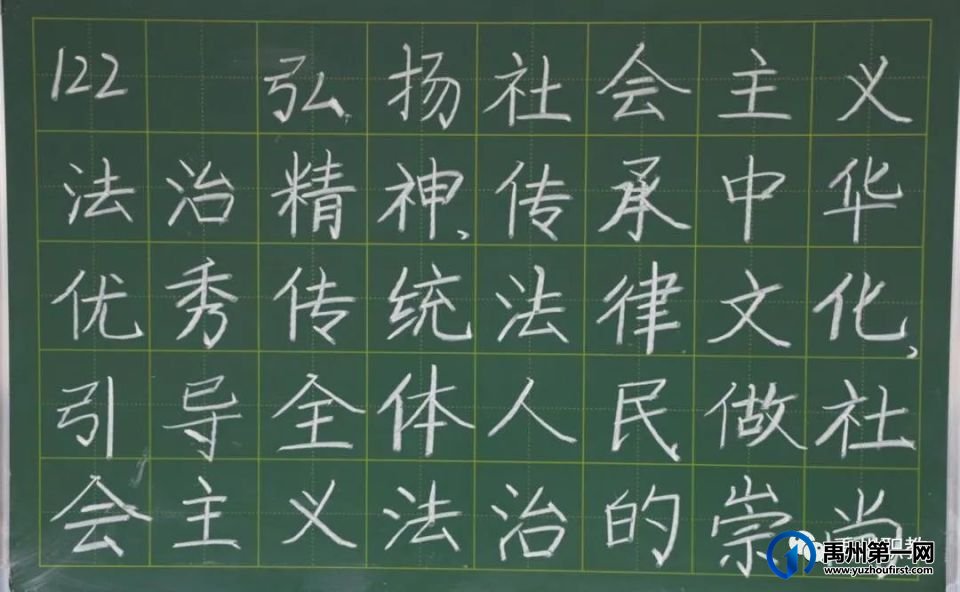 122 弘扬社会主义
法治精神,传承中华
优秀传统法律文化,
引导全体人民做社
会主义法治的崇尚
禹州第一网
www.yuzhoufirst.com